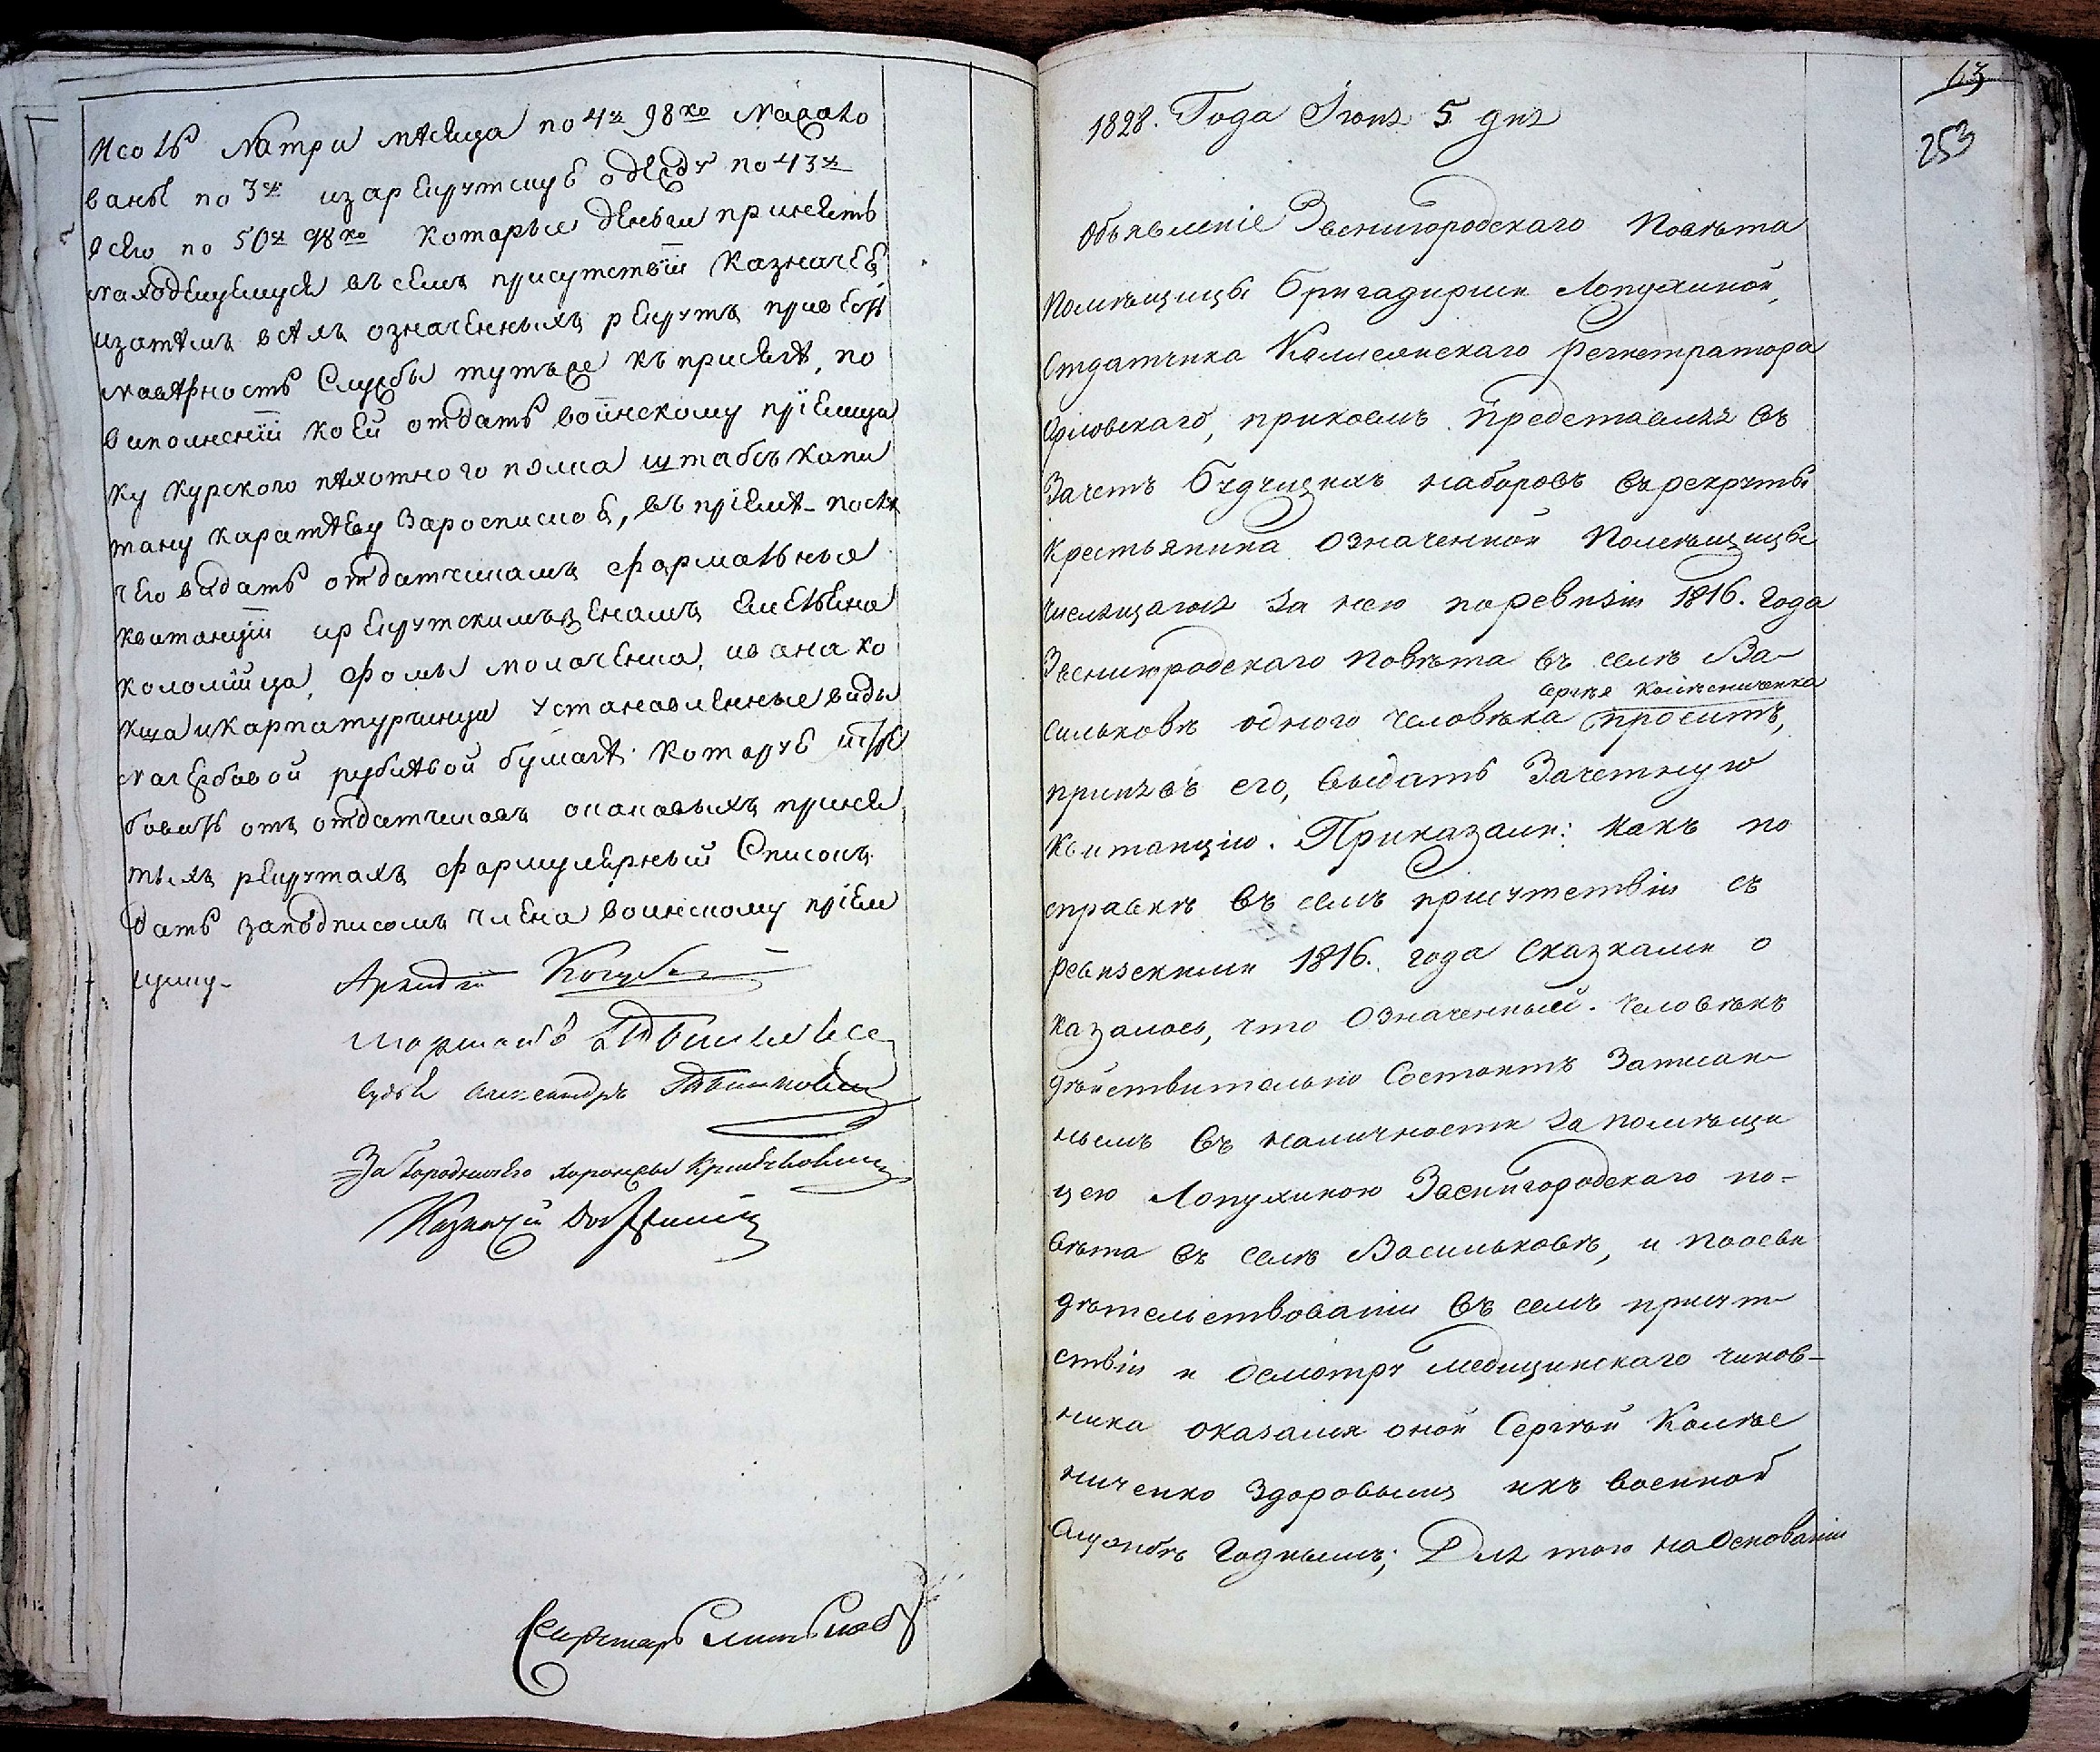 и соль на три месяца по 4 р 98 ко на жало
ванье по 3 р и за рекрутскую одежду по 43 р
всего по 50 р 98 ко которые деньги принять
находящемуся въ семъ присутствіи казначею
изатѣмъ всѣмъ означенныхъ рекрутъ привесть
на вѣрность службы тутъже къ присягѣ, по
виполненіи коей отдать воинскому пріемщи
ку курского пѣхотного полка штабсъ капи
тану каратѣеву заросписною, въ пріемѣ после
чего видать отдатчикамъ формальные
квитанціи и рекрутскимъ женамъ емельяна
коломійца, фомы молоченка, ивана ко
и карпа турчинца установленные виды
на гербовой рублѣвой бумагѣ которую истре
бовать отъ отдатчиковъ онаковыхъ приня
тыхъ рекрутахъ формулярный Списокъ
дать заподписомъ члена воинскому пріем
щику
Аркадій Кочубей
Маршалъ
Судья Александръ
За Городничего хоронжы
Казначей
Секретарь
63
253
1828. Года Іюня 5 дня
Объявленіе Звенигородскаго Повѣта
Помѣщицы Бригадирши Лопухиной
Отдатчика Коллежскаго Регистратора
Орловскаго, прикоемъ Представляя въ
Зачетъ будущихъ наборовъ въ рекруты
Крестьянина означенной Помѣщицы
числящагося за нею по ревизіи 1816. года
Звенигородскаго повѣта въ селѣ Ва-
Сергѣя Колѣсниченка
сильковѣ одного человѣка проситъ,
принявъ его, выдать Зачетную
Квитанцію. Приказали: какъ по
справкѣ въ семъ присутствіи съ
ревизскими 1816. года сказками о
казалось, что означенный человѣкъ
дѣйствительно Состоитъ записан
нымъ въ наличности за помѣщи
цею Лопухиною Звенигородскаго по-
вѣта въ селѣ Васильковѣ, и поосви
дѣтельствованіи въ семъ присут
ствіи и осмотру медицинскаго чинов-
ника оказался оной Сергѣй Колѣс
ниченко здоровымъ и къ военной
Службѣ годнымъ; Для того на Основаніи